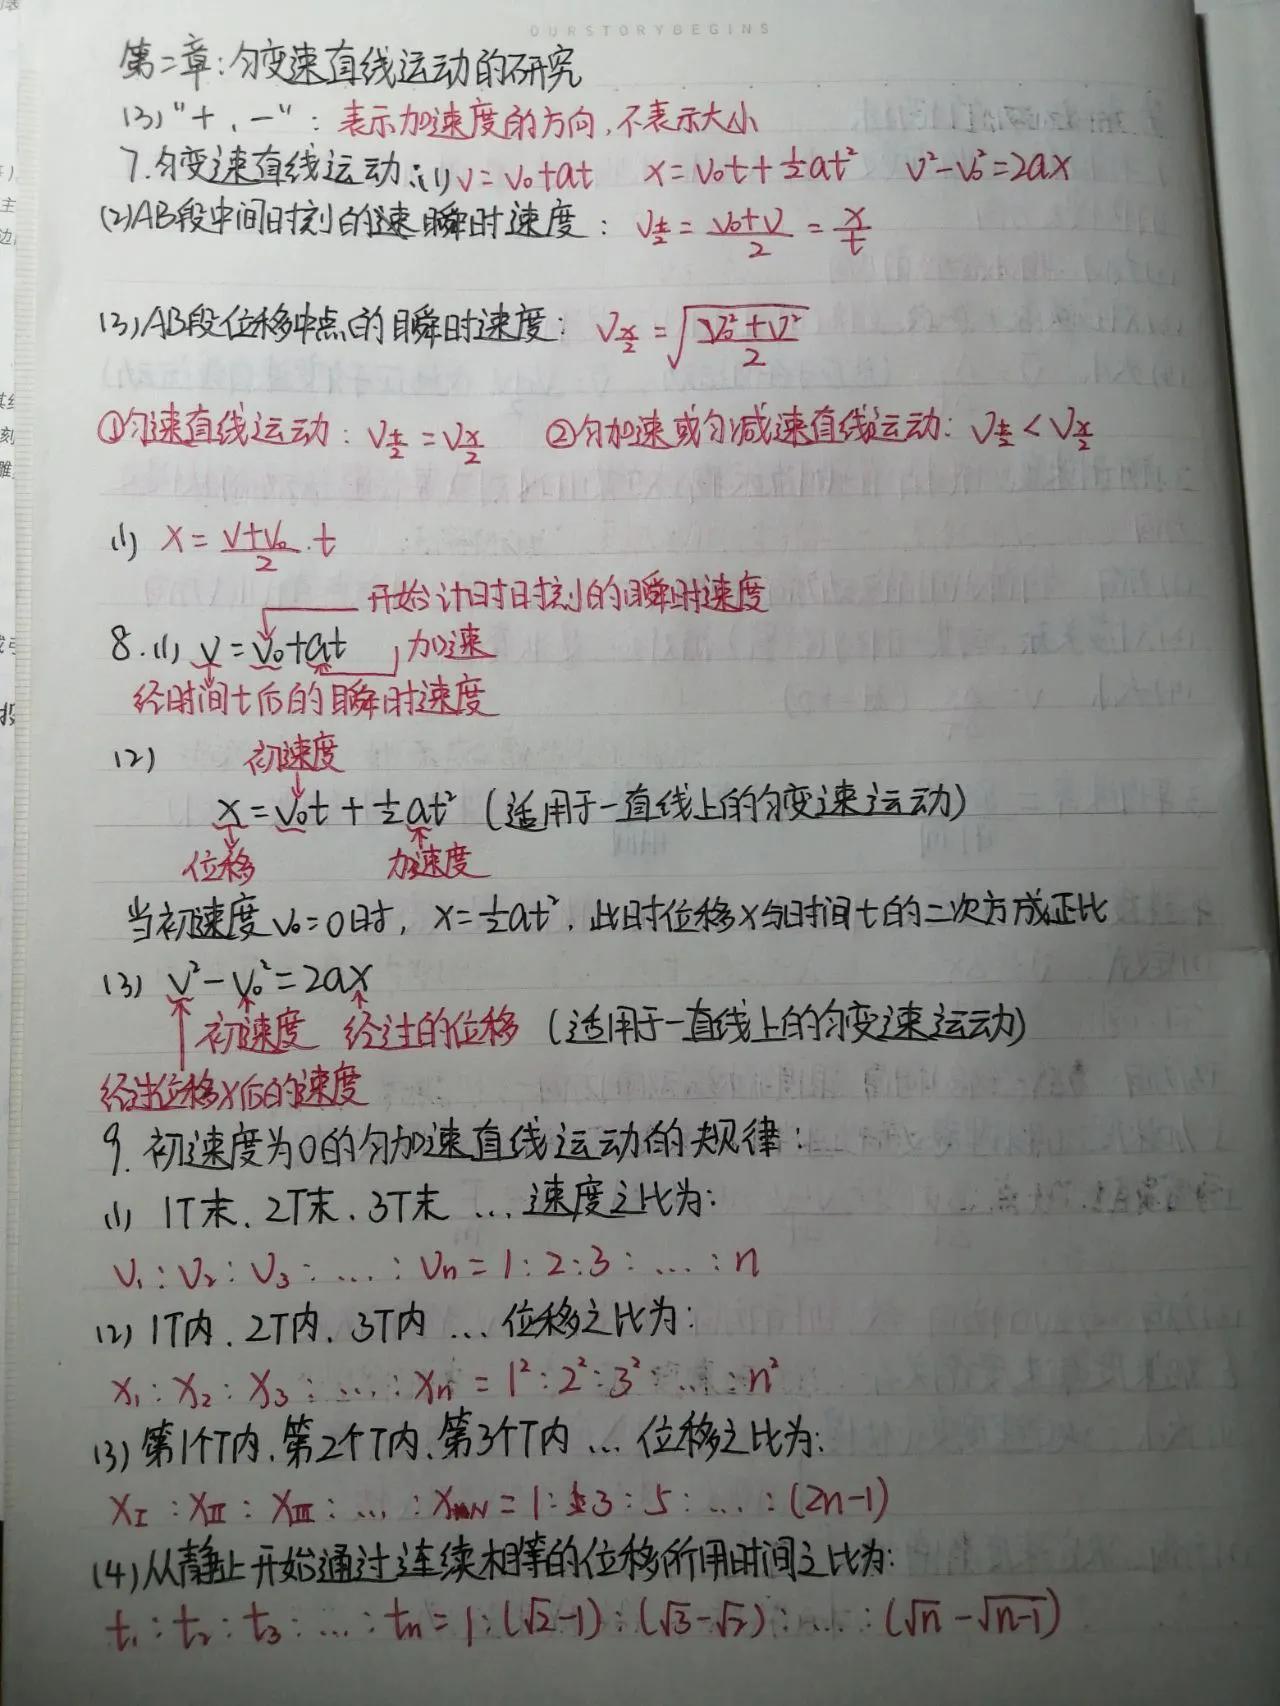 OURSTORYBEGINS
第二章:匀变速直线运动的研究
(3)"+、-":表示加速度的方向,不表示大小
7.匀变速直线运动:(1) v=v₀+at x=v₀t+½at² v²-v₀²=2ax
(2)AB段中间时刻的速瞬时速度: v_{t/2}=(v₀+v)/2=x/t
(3)AB段位移中点的瞬时速度: v_{x/2}=√((v₀²+v²)/2)
①匀速直线运动:v_{t/2}=v_{x/2} ②匀加速或匀减速直线运动:v_{t/2}<v_{x/2}
(1) x=(v+v₀)/2·t
开始计时时刻的瞬时速度
8.(1) v=v₀+at 加速
经时间t后的瞬时速度
(2) 初速度
x=v₀t+½at² (适用于一直线上的匀变速运动)
位移 加速度
当初速度v₀=0时, x=½at², 此时位移x与时间t的二次方成正比
(3) v²-v₀²=2ax
初速度 经过的位移 (适用于一直线上的匀变速运动)
经过位移x后的速度
9.初速度为0的匀加速直线运动的规律:
(1) 1T末、2T末、3T末…速度之比为:
v₁:v₂:v₃:…:vn=1:2:3:…:n
(2) 1T内、2T内、3T内…位移之比为:
x₁:x₂:x₃:…:xn=1²:2²:3²:…:n²
(3)第1个T内、第2个T内、第3个T内…位移之比为:
xⅠ:xⅡ:xⅢ:…:xN=1:3:5:…:(2n-1)
(4)从静止开始通过连续相等的位移所用时间之比为:
t₁:t₂:t₃:…:tn=1:(√2-1):(√3-√2):…:(√n-√(n-1))